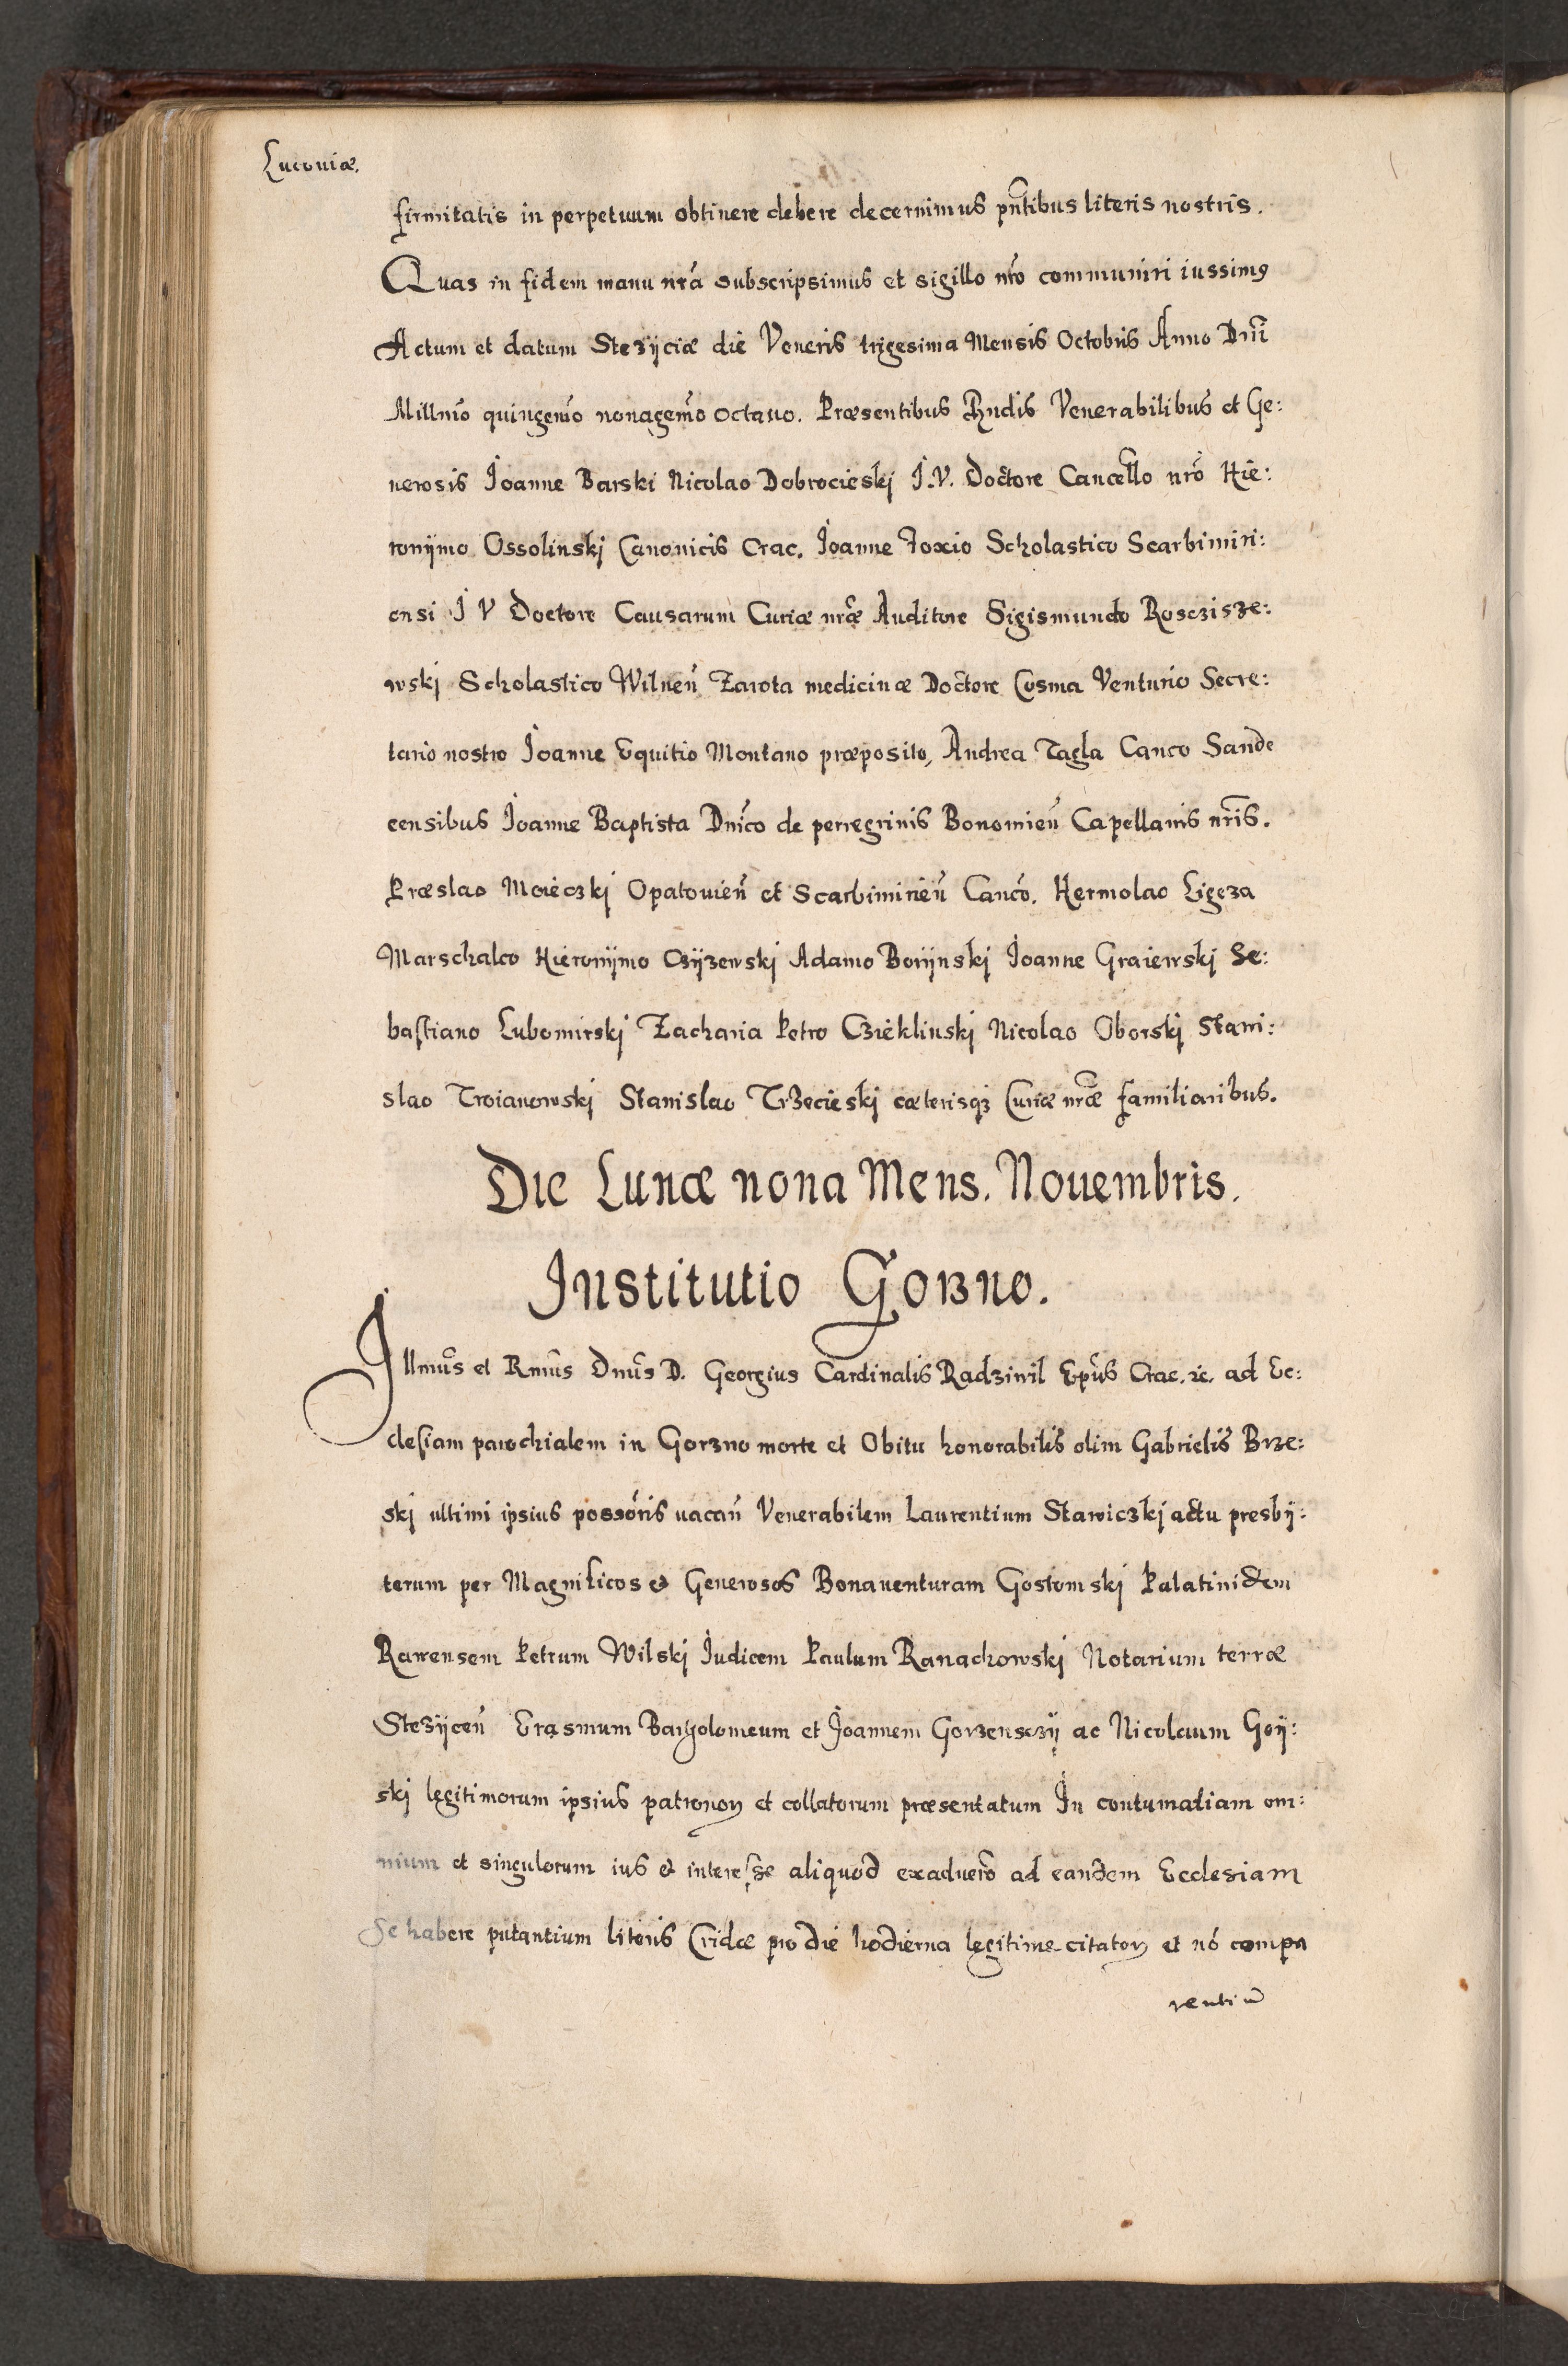 Lucouiæ.
firmitatis in perpetuum obtinere debere decernimus pñtibus literis nostris.
Quas in fidem manu nrã subscripsimus et sigillo nrõ communiri iussimꝰ
Actum et datum Stezÿciæ die Veneris trigesima Mensis Octobris Anno Dñi
Millmõ quingemõ nonagemõ octauo. Præsentibus Rndis Venerabilibus et Ge:
nerosis Joanne Barski Nicolao Dobrocieskj J.V. Doctore Cancello nrõ Hie:
ronÿmo Ossolinskj Canonicis Crac. Joanne Foxio Scholastico Scarbimiri:
ensi J V Doctore Causarum Curiæ nræ Auditore Sigismundo Rosczisze:
wskj Scholastico Wilneñ Zarota medicinæ Doctore Cosma Venturio Secre:
tario nostro Joanne Equitio Montano præposito, Andrea Tagla Canco Sande
censibus Joanne Baptista Dnico de perregrinis Bonomieñ Capellanis nris.
Præslao Moieczkj Opatouieñ et Scarbimirieñ Cancõ. Hermolao Ligeza
Marschalco Hieronÿmo Czÿzewskj Adamo Borÿnskj Joanne Graiewskj Se:
bastiano Lubomirskj Zacharia Petro Czieklinskj Nicolao Oborskj Stani:
slao Troianowskj Stanislao Trzecieskj cæterisqꝫ Curiæ nræ familiaribus.
Die Lunæ nona Mens. Nouembris.
Institutio Gorzno.
Illmũs et Rmũs Dnũs D. Georgius Cardinalis Radziwil Epũs Crac. &c. ad Ec:
clesiam parochialem in Gorzno morte et Obitu honorabilis olim Gabrielis Brze:
skj ultimi ipsius possõris uacañ Venerabilem Laurentium Stawiczkj actu presbÿ:
terum per Magnificos et Generosos Bonauenturam Gostomskj Palatinidem
Rawensem Petrum Wilskj Judicem Paulum Ranachowskj Notarium terræ
Stezÿceñ Erasmum Bartholomeum et Joannem Gorzensczÿ ac Nicolaum Goÿ:
skj legitimorum ipsius patronoꝝ et collatorum præsentatum In contumatiam om:
nium et singulorum ius et interesse aliquod exaduerõ ad eandem Ecclesiam
se habere putantium literis Cridæ pro die hodierna legitime citatoꝝ et nõ compa
rentiũ